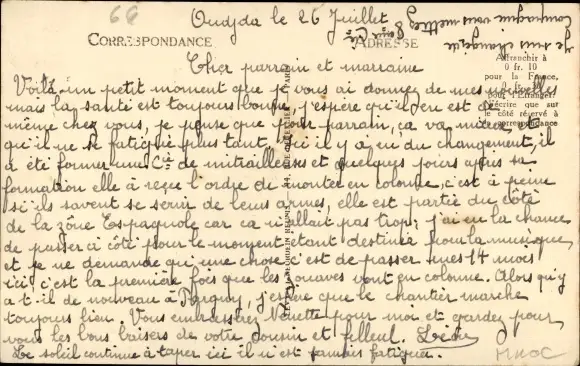 66
Oudjda le 26 Juillet
Je suis changé de
compagnie vous mettrez
CORRESPONDANCE
ADRESSE
Affranchir à
0 fr. 10
pour la France,
pour l'Etranger
n'écrire que sur
le côté réservé à
correspondance
Cher parrain et marraine
Voilà un petit moment que je vous ai donnez de mes nouvelles
mais la santé est toujours bonne, j'espère qu'il en est de
même chez vous, je pense que pour parrain, ça va mieux et
qu'il ne se fatigue plus tant. Ici il y a eu du changement, il
a été former une Cie de mitrailleuses et quelques jours après sa
formation elle à reçue l'ordre de monter en colonne, c'est à peine
si ils savent se servir de leurs armes, elle est partie du côté
de la zône Espagnole car ca n'allait pas trop; j'ai eu la chance
de passer à côté pour le moment étant destinée pour la musique
et je ne demande qu'une chose c'est de passer mes 14 mois
ici, c'est la première fois que les zouaves vont en colonne. Alors qu'y
a-t-il de nouveau à, j'espère que le chantier marche
toujours bien. Vous embrasserez Nénette pour moi et gardez pour
vous les bons baisers de votre cousin et filleul.
Le soleil continue à taper ici il n'est jamais fatiguer.
MAROC